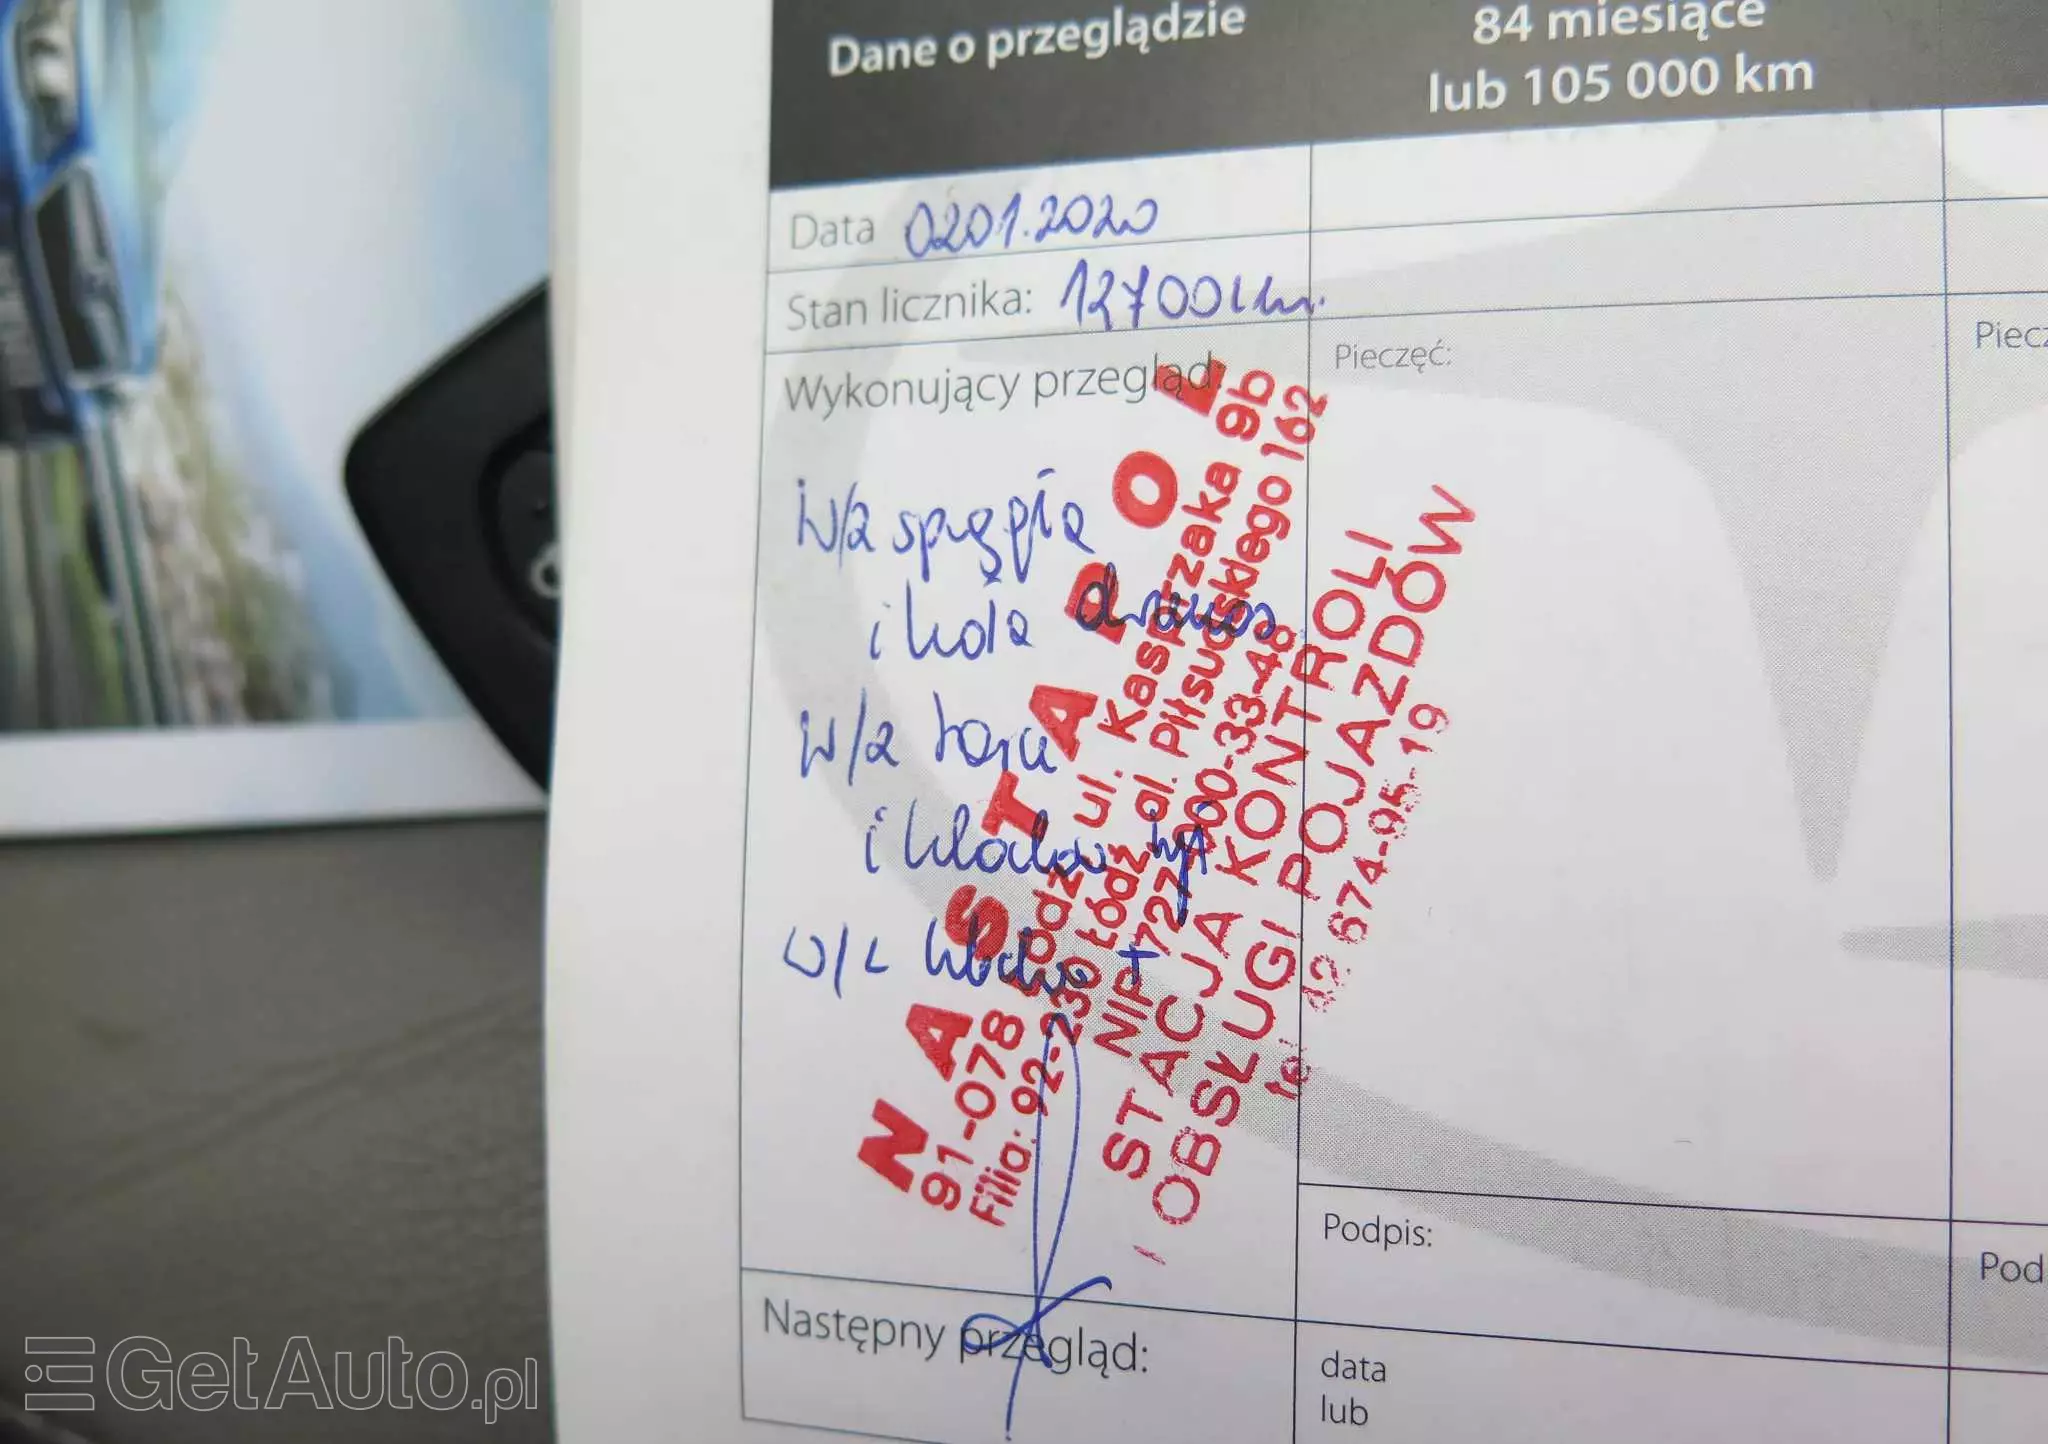 Dane o przeglądzie
84 miesiące
lub 105 000 km
Data 02.01.2020
Stan licznika: 12700 km.
Wykonujący przegląd:
Pieczęć:
Piecz
w/a sprzęgła
i koła
w/a
i
NASTAROL
91-078 Łódź ul. Kasprzaka 9b
Filia: 92-230 Łódź al. Piłsudskiego 162
NIP 727- 00-33-48
STACJA KONTROLI
I OBSŁUGI POJAZDÓW
tel. 42 674-95-19
Podpis:
Pod
Następny przegląd:
data
lub
GetAuto.pl